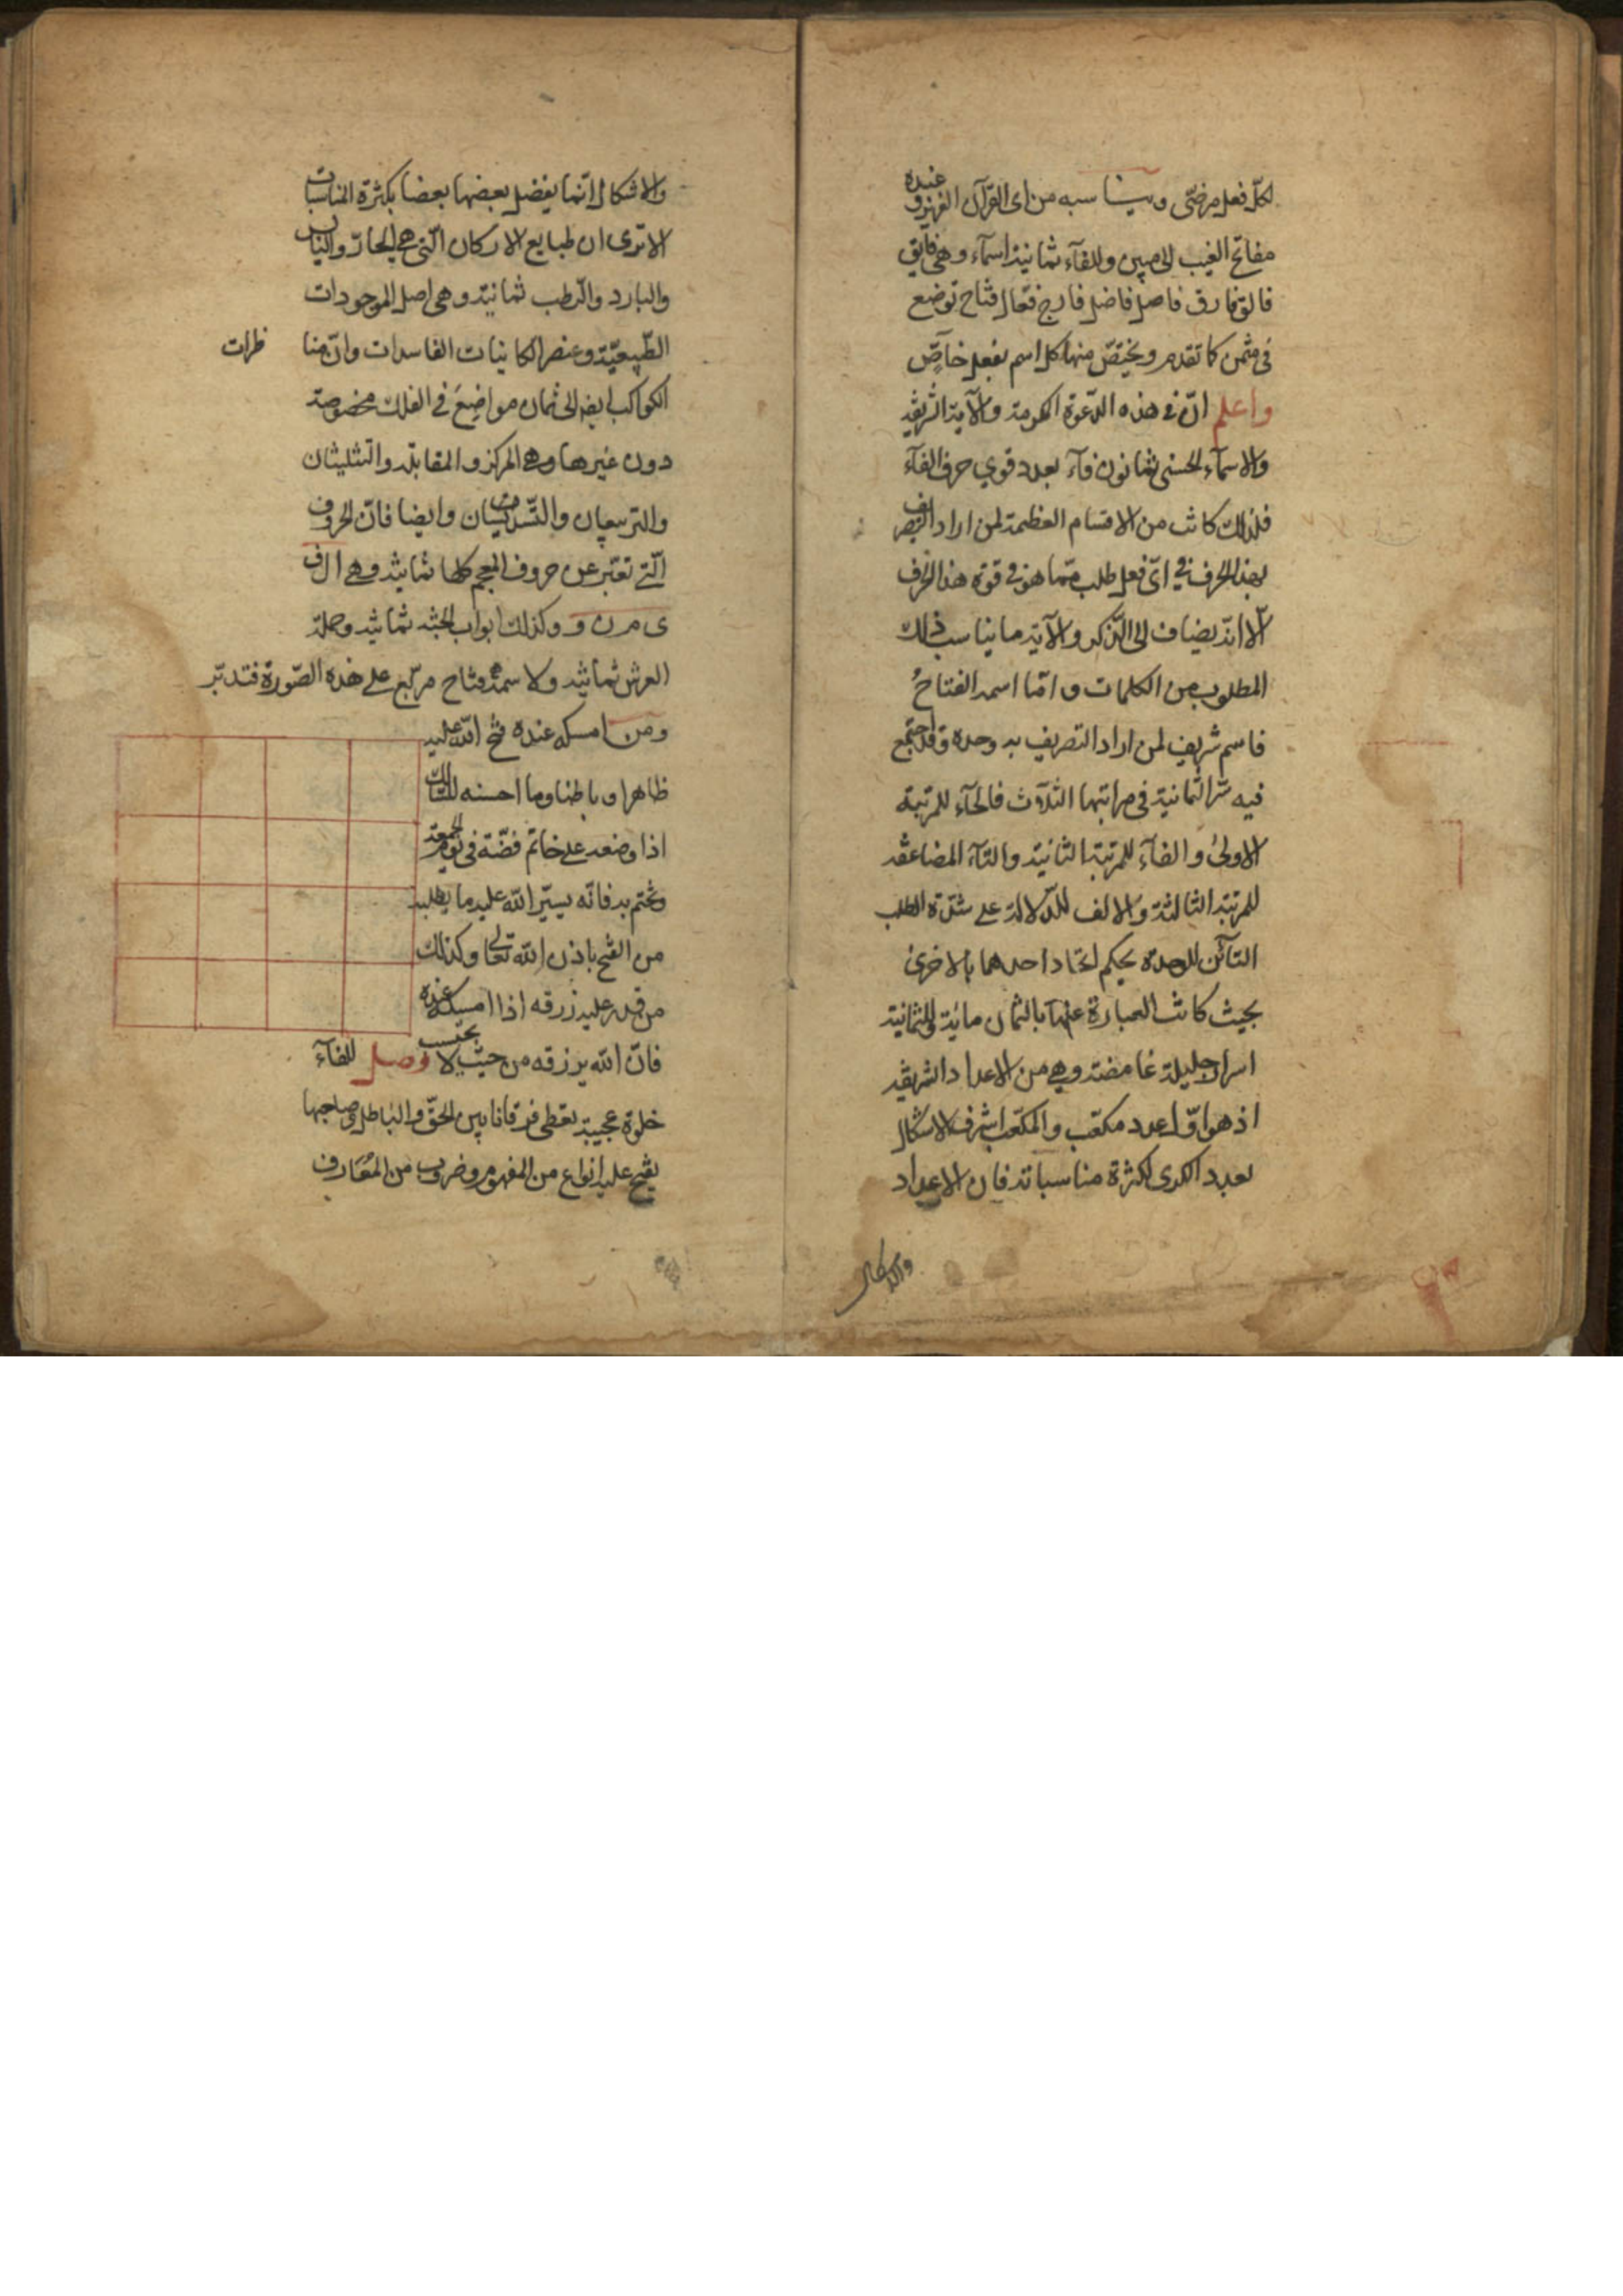 لكلّ فعل مرضّى ويناسبه من اى القرآن العزيز وعنده
مفاتح الغيب الى مبين وللفاء ثمانية اسماء وهى فايق
فالق فارق فاصل فاضل فارج فعّال فتاح توضع
فى مثمن كما تقدم ويختصّ منها كل اسم بفعل خاصّ
واعلم انّ فى هذه الدّعوة الكريمة والآية الشريفة
والاسماء الحسنى ثمانون فاء بعدد قوي حرف الفاء
فلذلك كانت من الاقسام العظيمة لمن اراد التصريف
بهذا الحرف فى اىّ فعل طلب ممّا هو فى قوة هذا الحرف
الا انّه يضاف الى الذّكر والآية ما يناسب ذلك
المطلوب من الكلمات وامّا اسمه الفتاحُ
فاسم شريف لمن اراد التصريف به وحده وقد اجتمع
فيه سرّ الثمانية فى مراتبها الثلاث فالحاء للمرتبة
الاولىٰ والفاء للمرتبة الثانية والتاء المضاعفة
للمرتبة الثالثة والالف للدّلالة على شدّة الطلب
التائن للوحدة بحكم اتحاد احدهما بالاخرى
بحيث كانت العبارة عنها بالثمان مائة وللثمانية
اسرار جليلة غامضة وهى من الاعداد الشريفة
اذ هو اوّل عدد مكعّب والمكعّب اشرف الاشكال
بعدد الكرى لكثرة مناسباته فان الاعداد
والاشكال
والاشكال انّما يفضل بعضها بعضا بكثرة المناسبات
الا ترى ان طبايع الاركان الّتى هى الحارّ واليابس
والبارد والرّطب ثمانية وهى اصل الموجودات
الطّبيعيّة وعنصر الكاينات الفاسدات وانّ منا ظرات
الكواكب ايضا الى ثمان مواضع فى الفلك مخصوصة
دون غيرها وهى المركز والمقابلة والتثليثان
والتربيعان والتّسديسان وايضا فانّ الحروف
الّتى تعتبر عن حروف المعجم كلها ثمانية وهى ا ل ف
ى م ر ن و وكذلك ابواب الجنّة ثمانية وحملة
العرش ثمانية ولاسمه فتاح مربّع على هذه الصّورة فتدبّر
ومن امسكه عنده فتح اللّه عليه
ظاهرا وباطنا وما احسنه للسالك
اذا وضعه على خاتم فضّة فى يوم الجمعة
وتختم به فانّه ييسّر اللّه عليه ما يطلبه
من الفتح باذن اللّه تعالى وكذلك
من قدر عليه رزقه اذا امسكه عنده
فانّ اللّه يرزقه من حيث لا يحتسب وصل للفاء
خلوة عجيبة تعطى فرقانا بين الحقّ والباطل وصاحبها
يفتح عليه انواع من الفهوم وضروب من المعارف